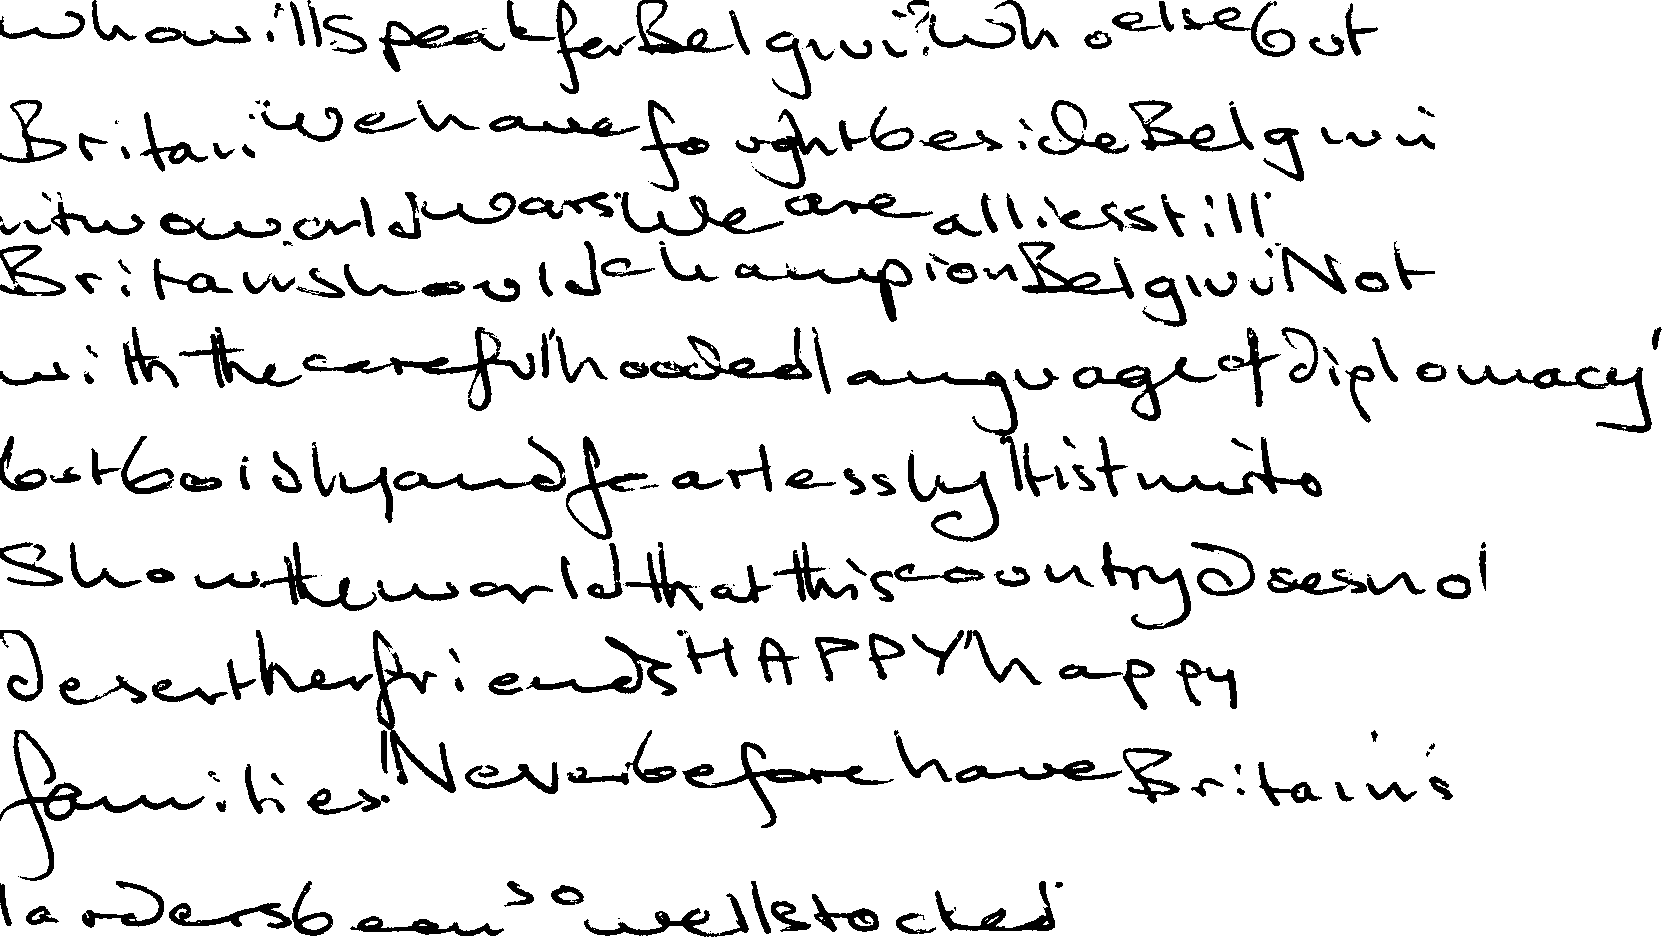 who will speak for Belgium? Who else but
Britain? We have fought beside Belgium
in two world wars. We are allies still.
Britain should champion Belgium. Not
with the careful hooded language of diplomacy,
but boldly and fearlessly. It is time to
show the world that this country does not
desert her friends. "HAPPY" happy
families. "Never before have Britain's
larders been so well stocked.